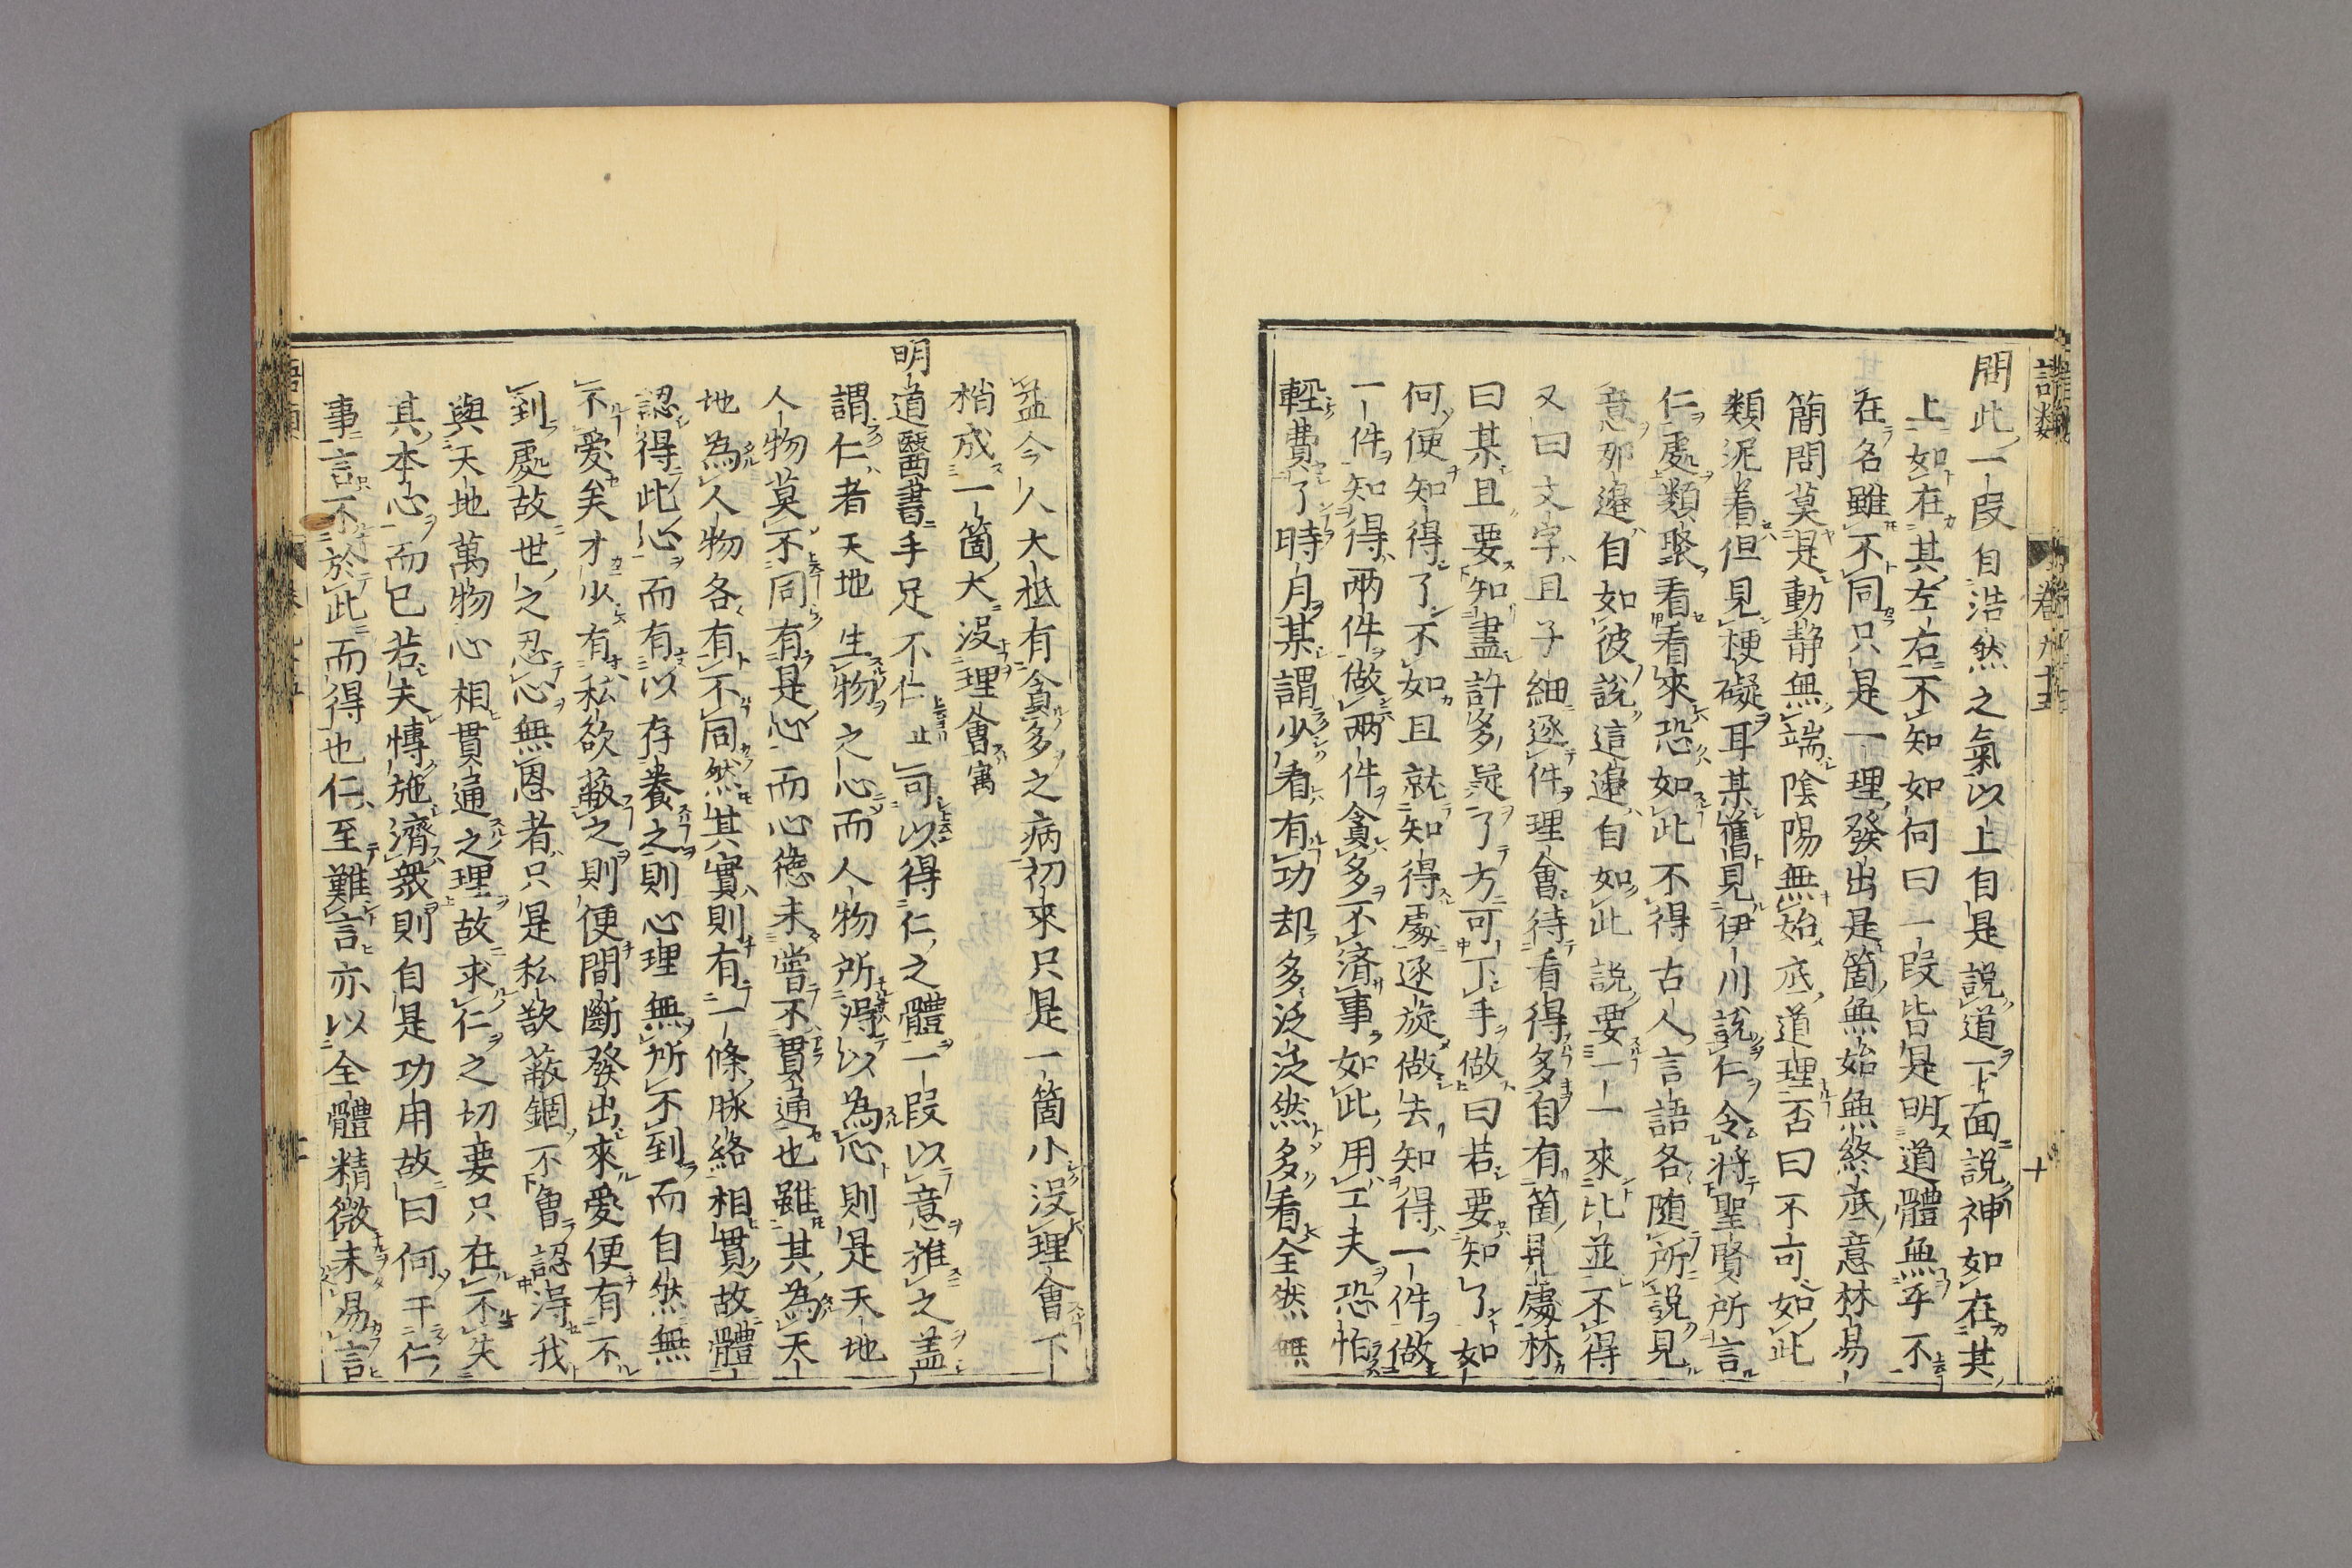 語類
卷九十五
十
問此一段自浩然之氣以上自是說道下面說神如在其
上如在其左右不知如何曰一段皆是明道體無乎不
在名雖不同只是一理發出是箇無始無終底意林易
簡問莫是動静無端陰陽無始底道理否曰不可如此
類泥着但見梗礙耳某舊見伊川說仁令將聖賢所言
仁處類聚看看來恐如此不得古人言語各随所說見
意那邉自如彼說這邉自如此說要一一來比並不得
又曰文字且子細逐件理會待看得多自有箇見處林
曰某且要知盡許多疑了方可下手做曰若要知了如
何便知得了不如且就知得處逐旋做去知得一件做
一件知得兩件做兩件貪多不濟事如此用工夫恐怕
輕費了時月某謂少看有功却多泛泛然多看全然無
益今人大柢有貪多之病初來只是一箇小没理會下
梢成一箇大没理會寓
明道醫書手足不仁止可以得仁之體一段以意推之蓋
謂仁者天地生物之心而人物所得以為心則是天地
人物莫不同有是心而心德未嘗不貫通也雖其為天
地為人物各有不同然其實則有一條脉絡相貫故體
認得此心而有以存養之則心理無所不到而自然無
不愛矣才少有私欲蔽之則便間斷發出來愛便有不
到處故世之忍心無恩者只是私欲蔽錮不曾認得我
與天地萬物心相貫通之理故求仁之切要只在不失
其本心而已若夫博施濟衆則自是功用故曰何干仁
事言不於此而得也仁至難言亦以全體精微未易言